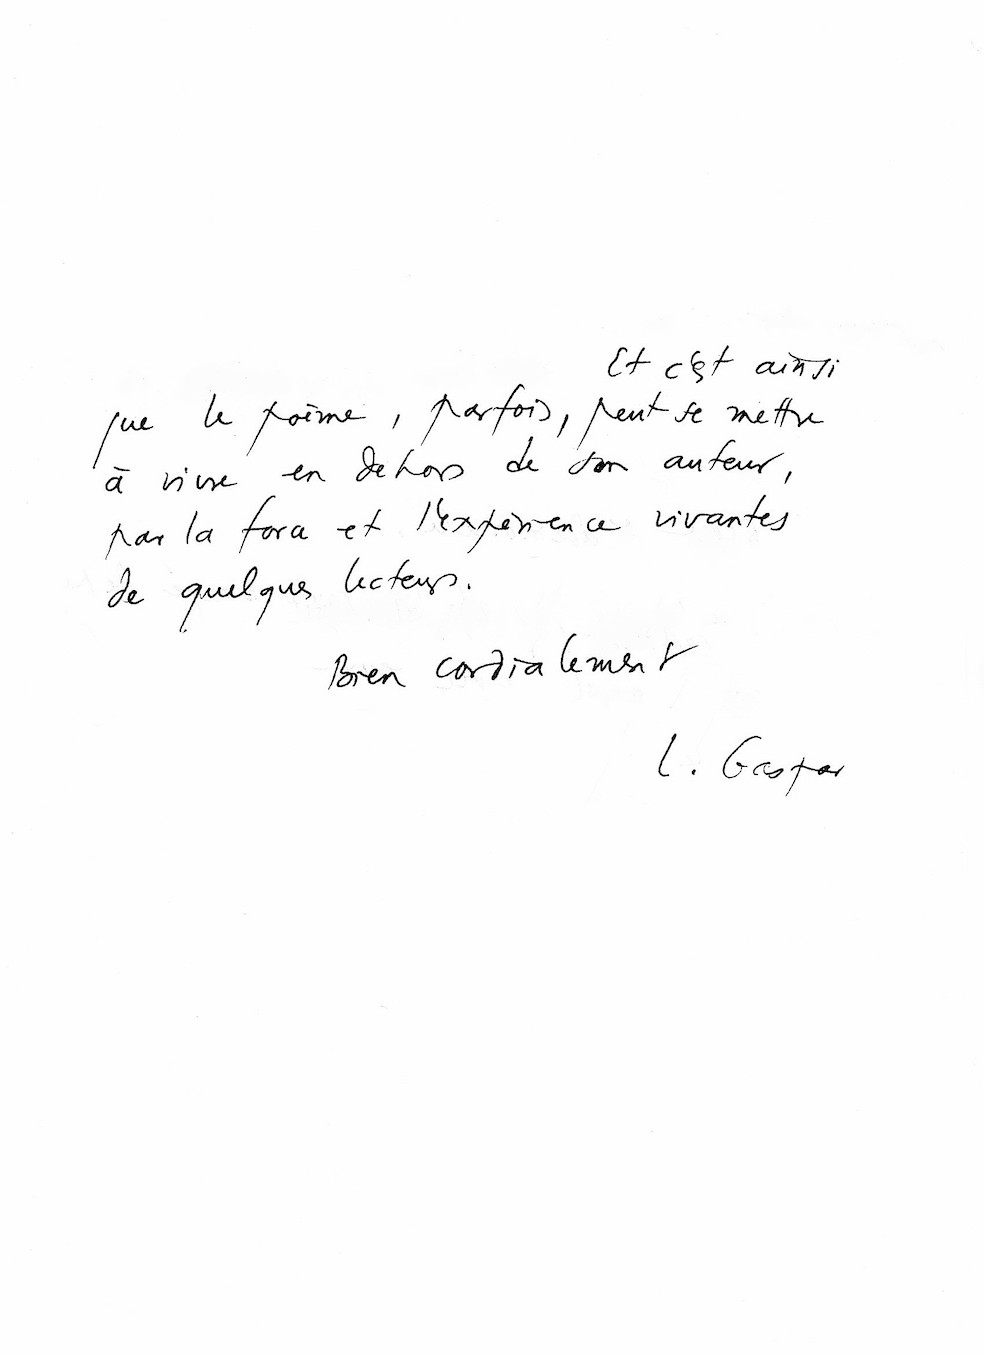 Et c'est ainsi
que le poème, parfois, peut se mettre
à vivre en dehors de son auteur,
par la force et l'expérience vivantes
de quelques lecteurs.
Bien cordialement
L. Gaspar